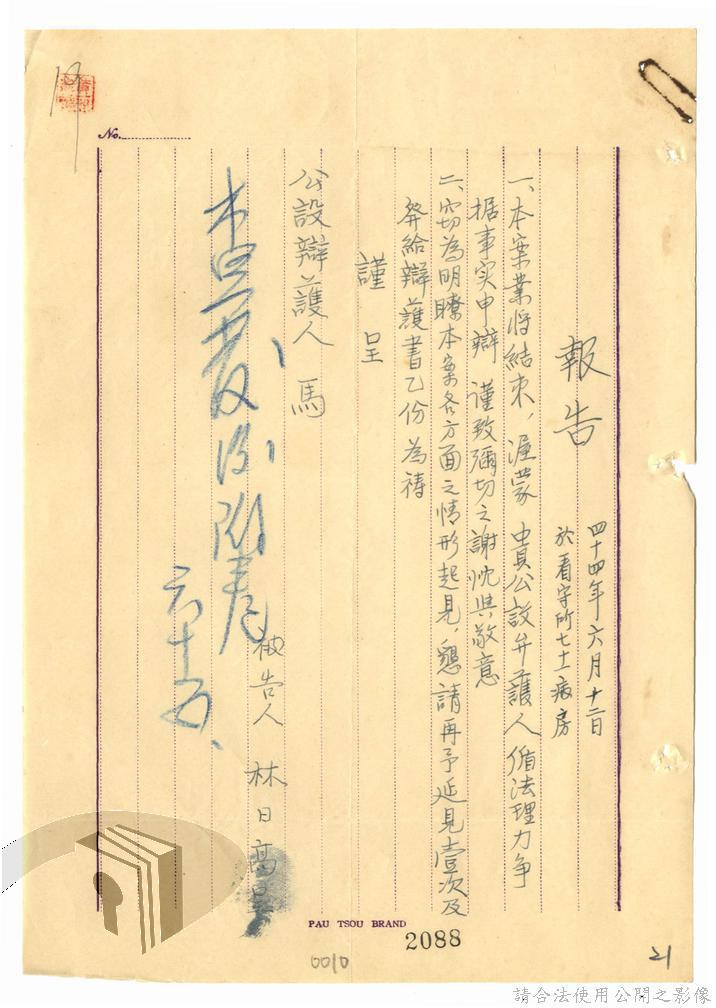 報告
四十四年六月十二日
於看守所七十一病房
一、本案業將結束,渥蒙 貴公設弁護人循法理力争
据事实申辯 謹致彌切之謝忱與敬意
二、窃為明瞭本案各方面之情形起見,懇請再予延見壹次及
發給辯護書乙份為祷
謹呈
公設辯護人 馬
六、十五、
被告人 林日高呈
No.
PAU TSOU BRAND
2088
0010
21
請合法使用公開之影像